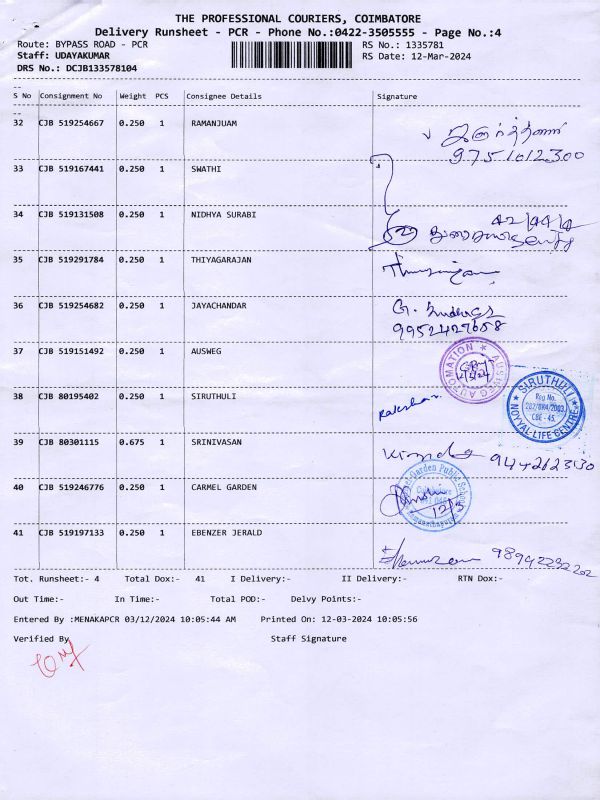 THE PROFESSIONAL COURIERS, COIMBATORE
Delivery Runsheet - PCR - Phone No.:0422-3505555 - Page No.:4
Route: BYPASS ROAD - PCR RS No.: 1335781
Staff: UDAYAKUMAR RS Date: 12-Mar-2024
DRS No.: DCJB133578104
S No Consignment No Weight PCS Consignee Details Signature
32 CJB 519254667 0.250 1 RAMANJUAM
9751012300
33 CJB 519167441 0.250 1 SWATHI
34 CJB 519131508 0.250 1 NIDHYA SURABI
35 CJB 519291784 0.250 1 THIYAGARAJAN
36 CJB 519254682 0.250 1 JAYACHANDAR
9952427658
37 CJB 519151492 0.250 1 AUSWEG
AUSWEG AUTOMATION
38 CJB 80195402 0.250 1 SIRUTHULI
SIRUTHULI
Reg No.
CBE - 45.
NOYYAL LIFE CENTRE
39 CJB 80301115 0.675 1 SRINIVASAN
40 CJB 519246776 0.250 1 CARMEL GARDEN
Garden Public School
41 CJB 519197133 0.250 1 EBENZER JERALD
Tot. Runsheet:- 4 Total Dox:- 41 I Delivery:- II Delivery:- RTN Dox:-
Out Time:- In Time:- Total POD:- Delvy Points:-
Entered By :MENAKAPCR 03/12/2024 10:05:44 AM Printed On: 12-03-2024 10:05:56
Verified By Staff Signature